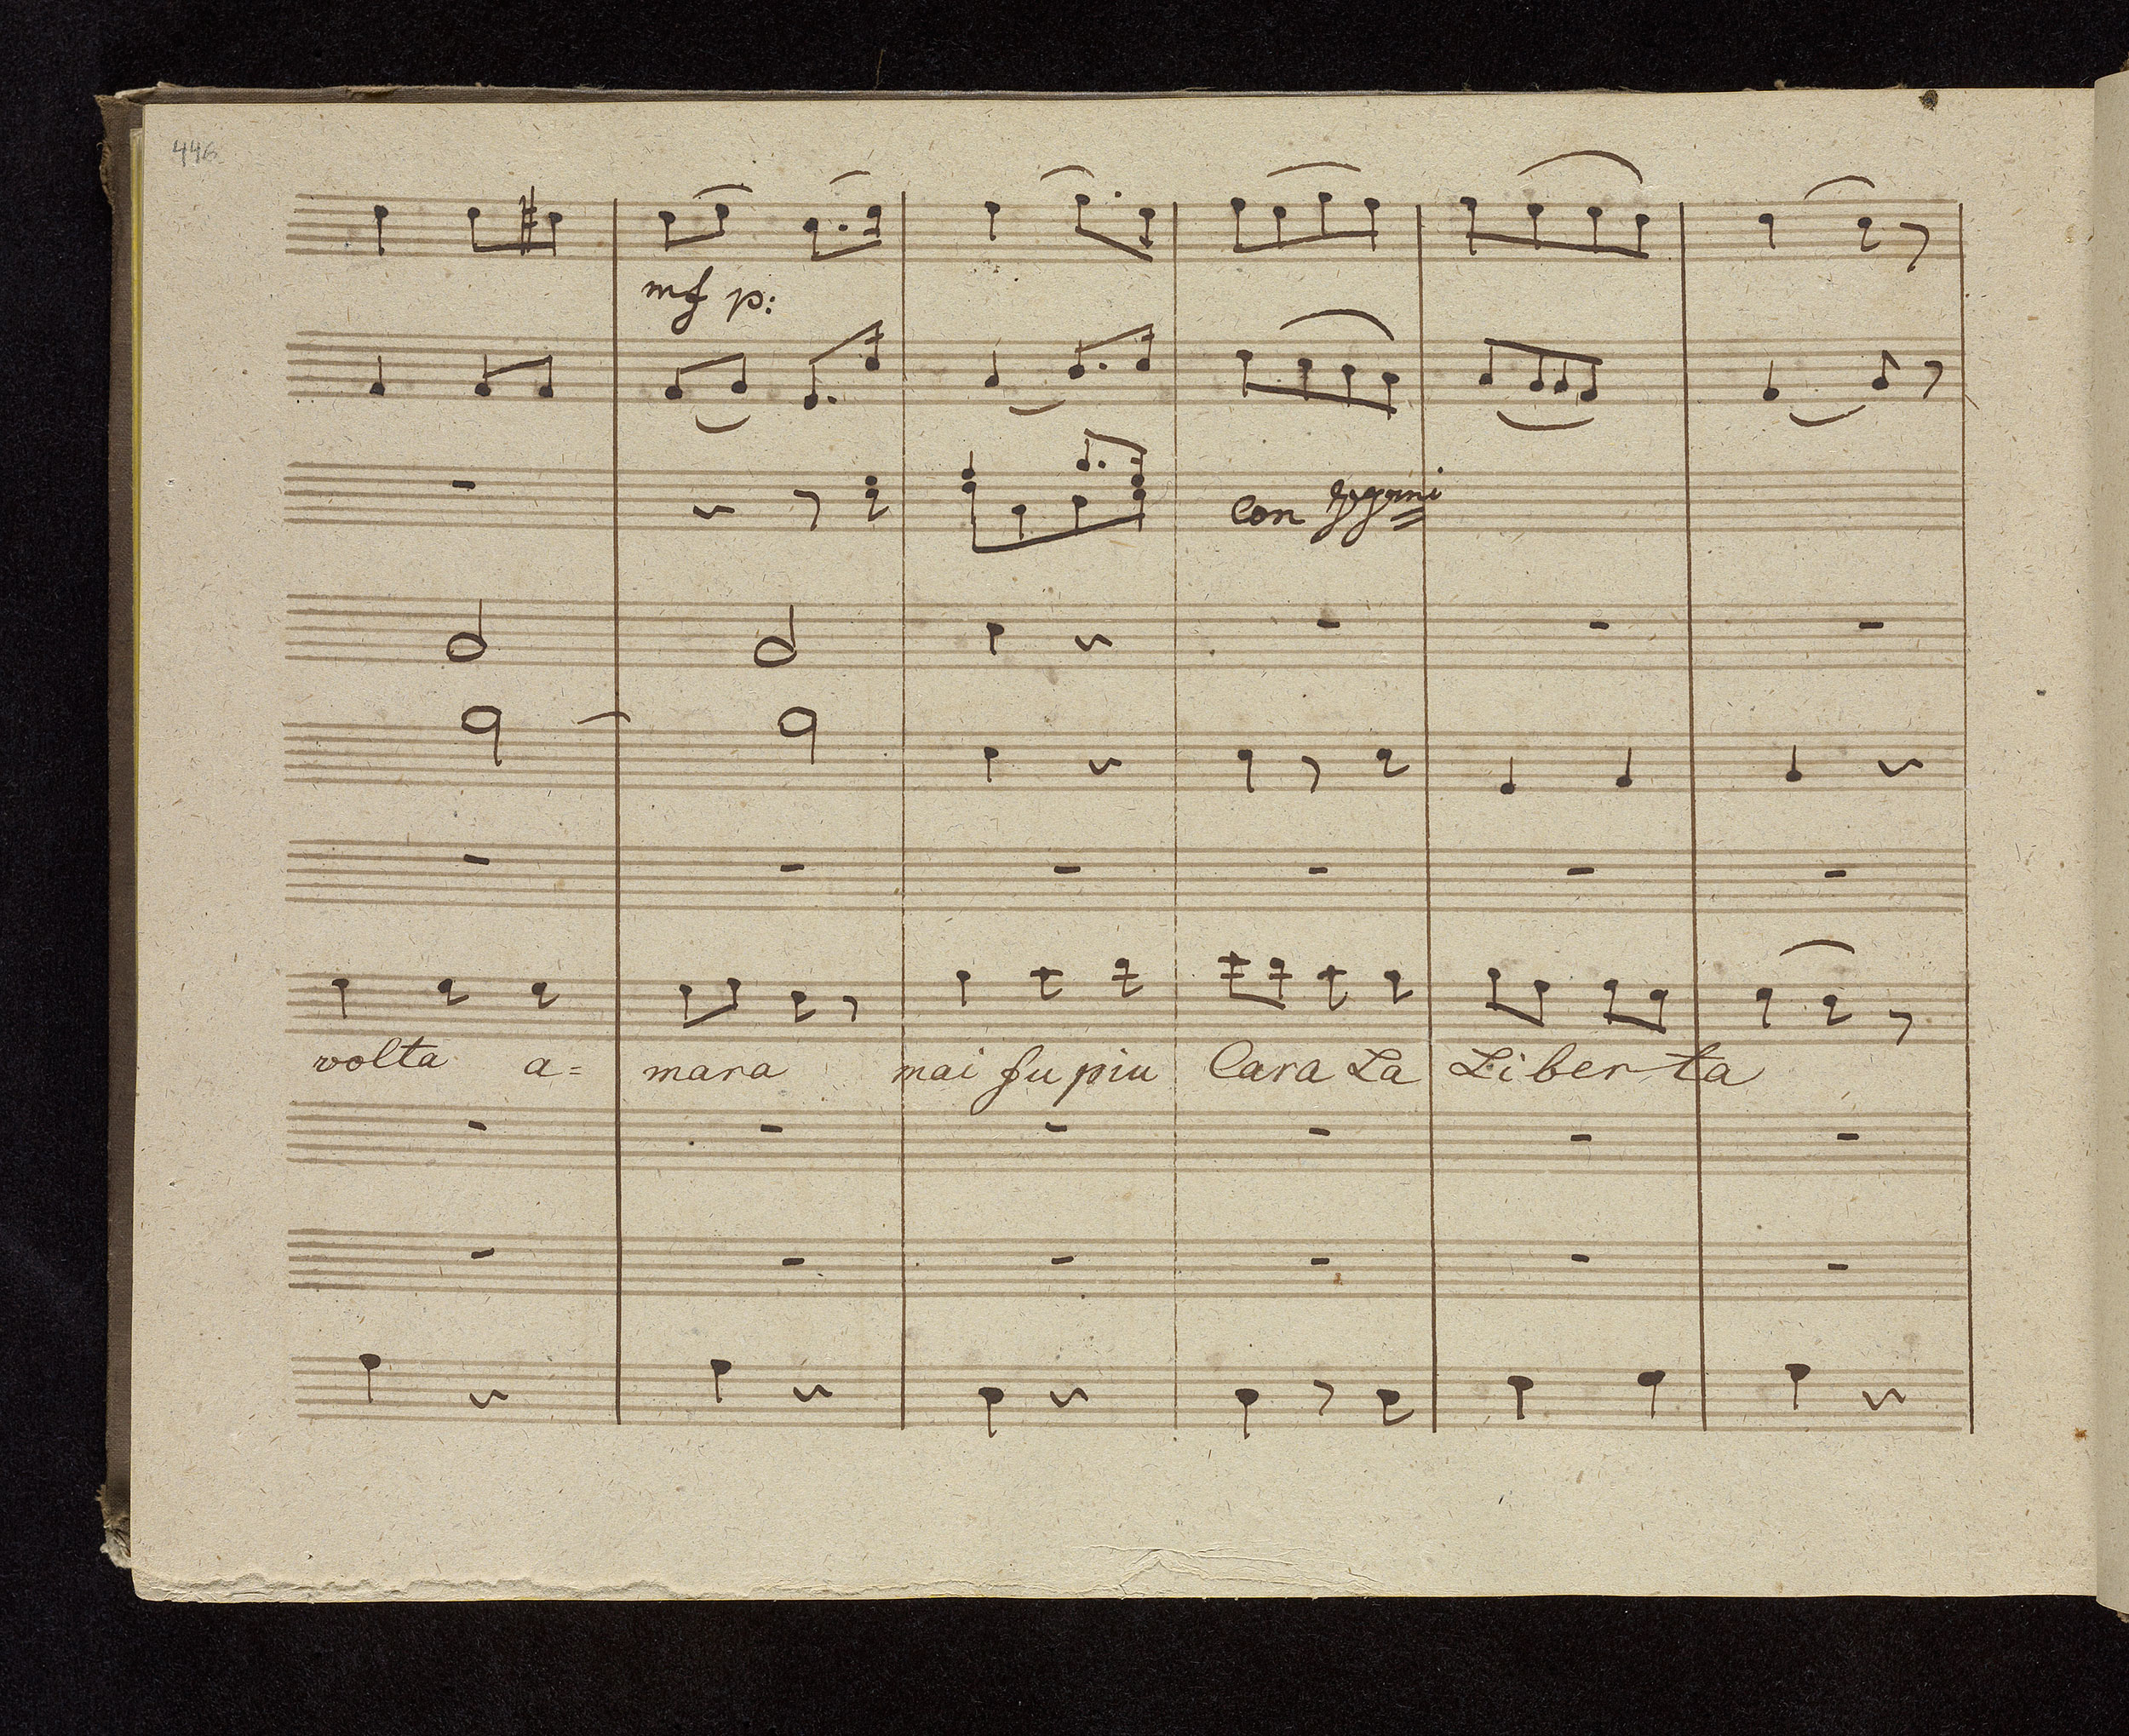 446
mf p:
Con
volta a= mara mai fu piu Cara La Liberta